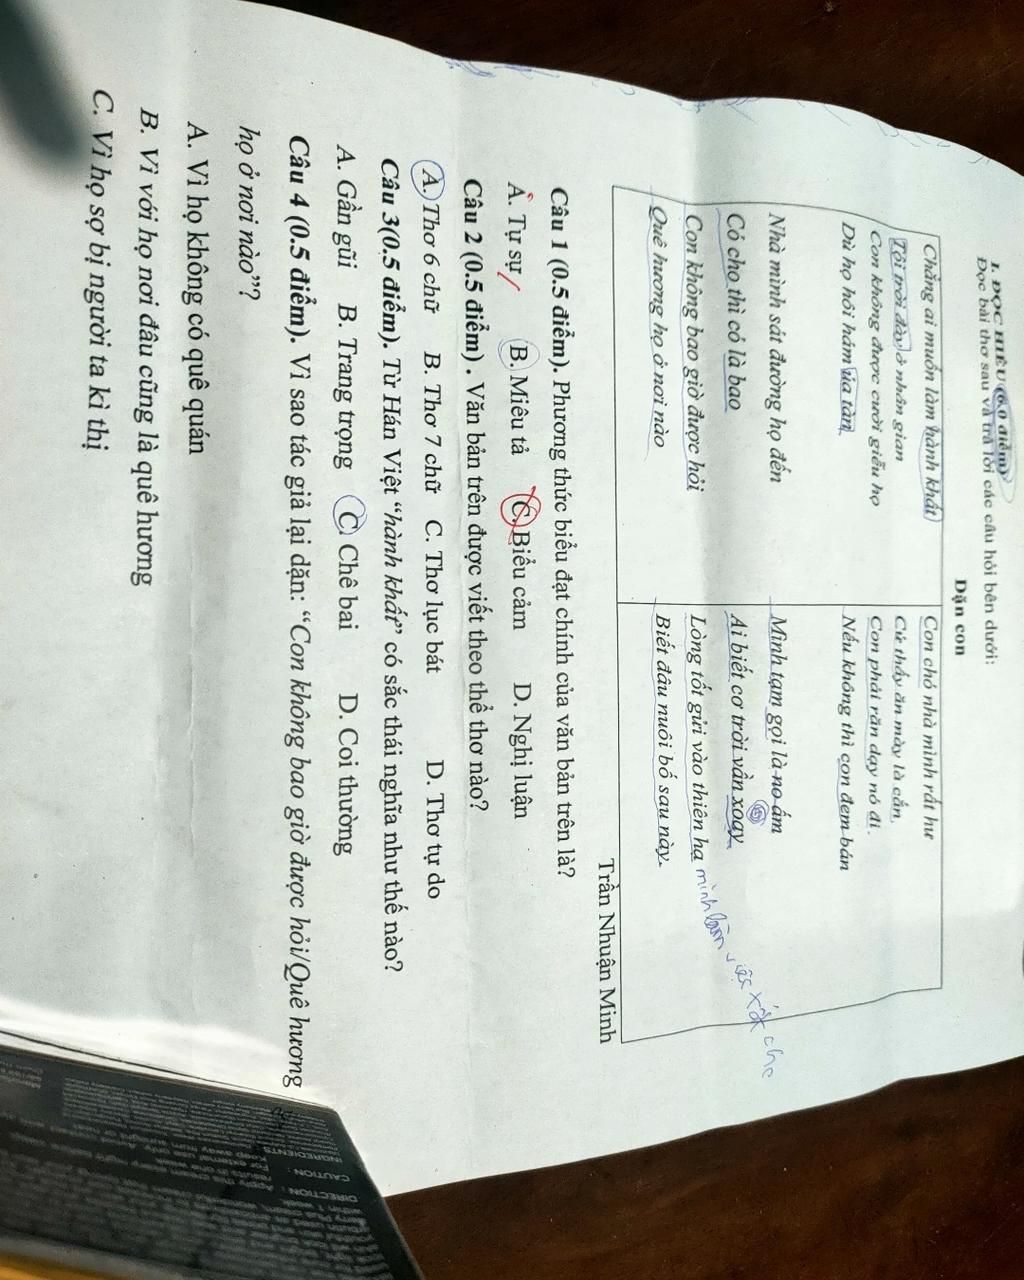 I. ĐỌC HIỂU (6.0 điểm)
Đọc bài thơ sau và trả lời các câu hỏi bên dưới:
Dặn con
Chẳng ai muốn làm hành khất
Tội trời đày ở nhân gian
Con không được cười giễu họ
Dù họ hôi hám úa tàn
Nhà mình sát đường họ đến
Có cho thì có là bao
Con không bao giờ được hỏi
Quê hương họ ở nơi nào
Con chó nhà mình rất hư
Cứ thấy ăn mày là cắn,
Con phải răn dạy nó đi.
Nếu không thì con đem bán
Mình tạm gọi là no ấm
Ai biết cơ trời vần xoay,
Lòng tốt gửi vào thiên hạ
Biết đâu nuôi bố sau này.
mình làm việc xấu cho
Trần Nhuận Minh
Câu 1 (0.5 điểm). Phương thức biểu đạt chính của văn bản trên là?
A. Tự sự B. Miêu tả C. Biểu cảm D. Nghị luận
Câu 2 (0.5 điểm) . Văn bản trên được viết theo thể thơ nào?
A. Thơ 6 chữ B. Thơ 7 chữ C. Thơ lục bát D. Thơ tự do
Câu 3(0.5 điểm). Từ Hán Việt "hành khất" có sắc thái nghĩa như thế nào?
A. Gần gũi B. Trang trọng C. Chê bai D. Coi thường
Câu 4 (0.5 điểm). Vì sao tác giả lại dặn: "Con không bao giờ được hỏi/Quê hương
họ ở nơi nào"?
A. Vì họ không có quê quán
B. Vì với họ nơi đâu cũng là quê hương
C. Vì họ sợ bị người ta kì thị
DIRECTION :
CAUTION :
For external use only.
Keep away
INGREDIENTS